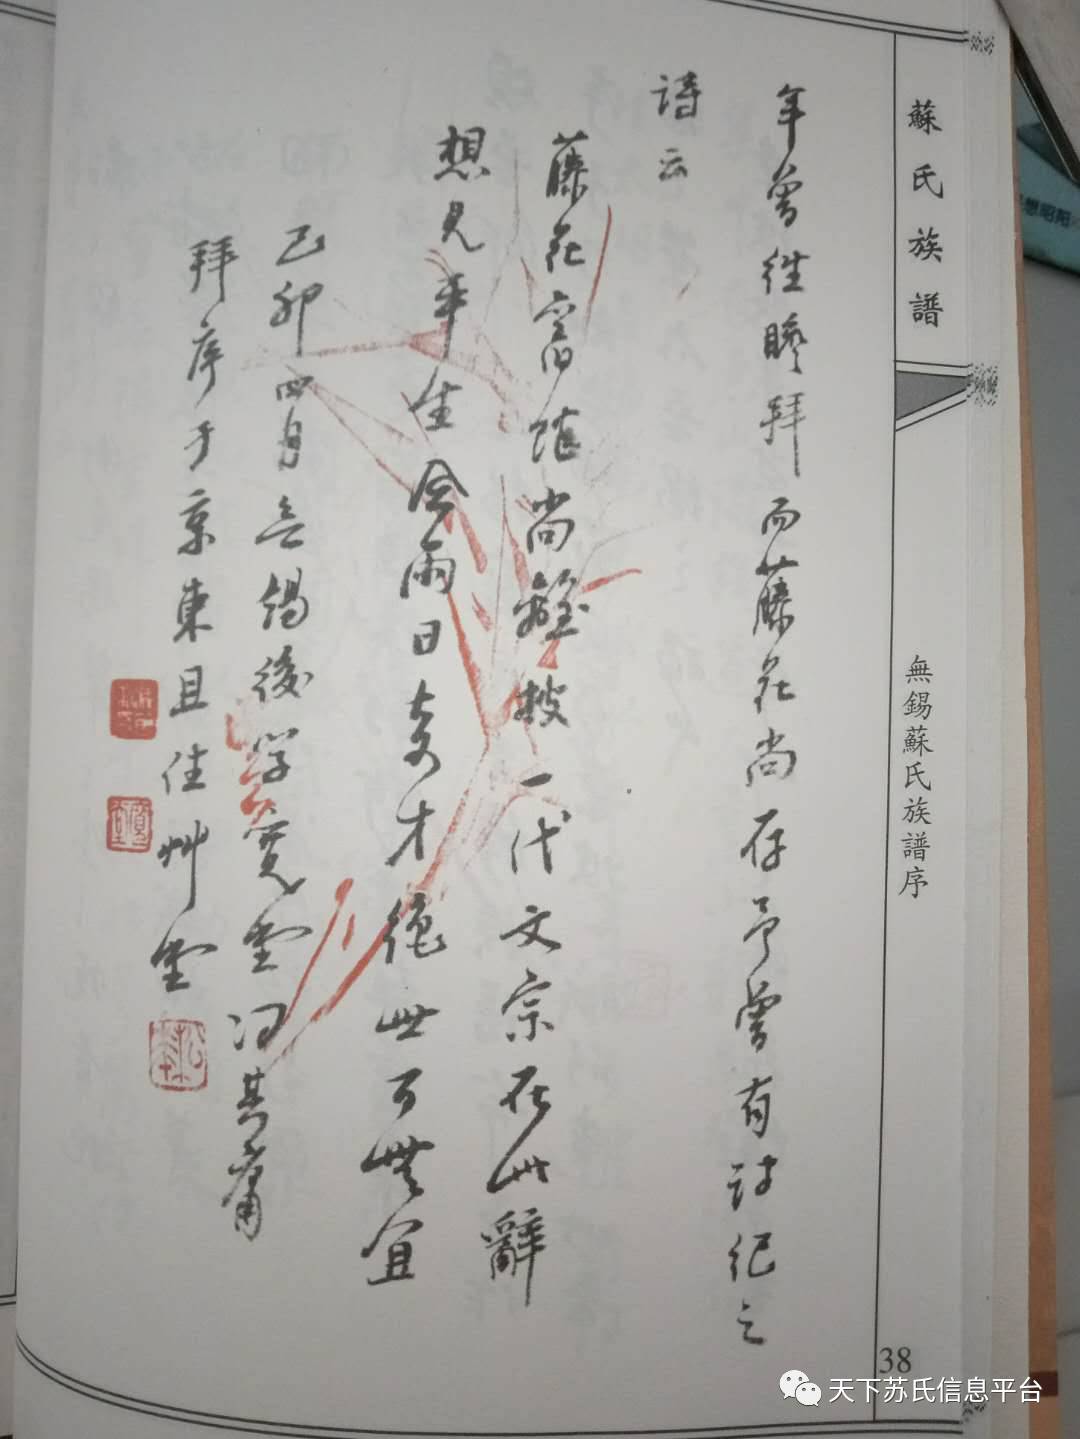 蘇氏族譜
無錫蘇氏族譜序
38
年曾往瞻拜而藤花尚存予曾有詩紀之
詩云
藤花舊蔭尚離披一代文宗在此辭
想見平生今雨日奇才絕世可無宜
己卯四月無錫後學寬堂馮其庸
拜序于京東且住艸堂
天下苏氏信息平台